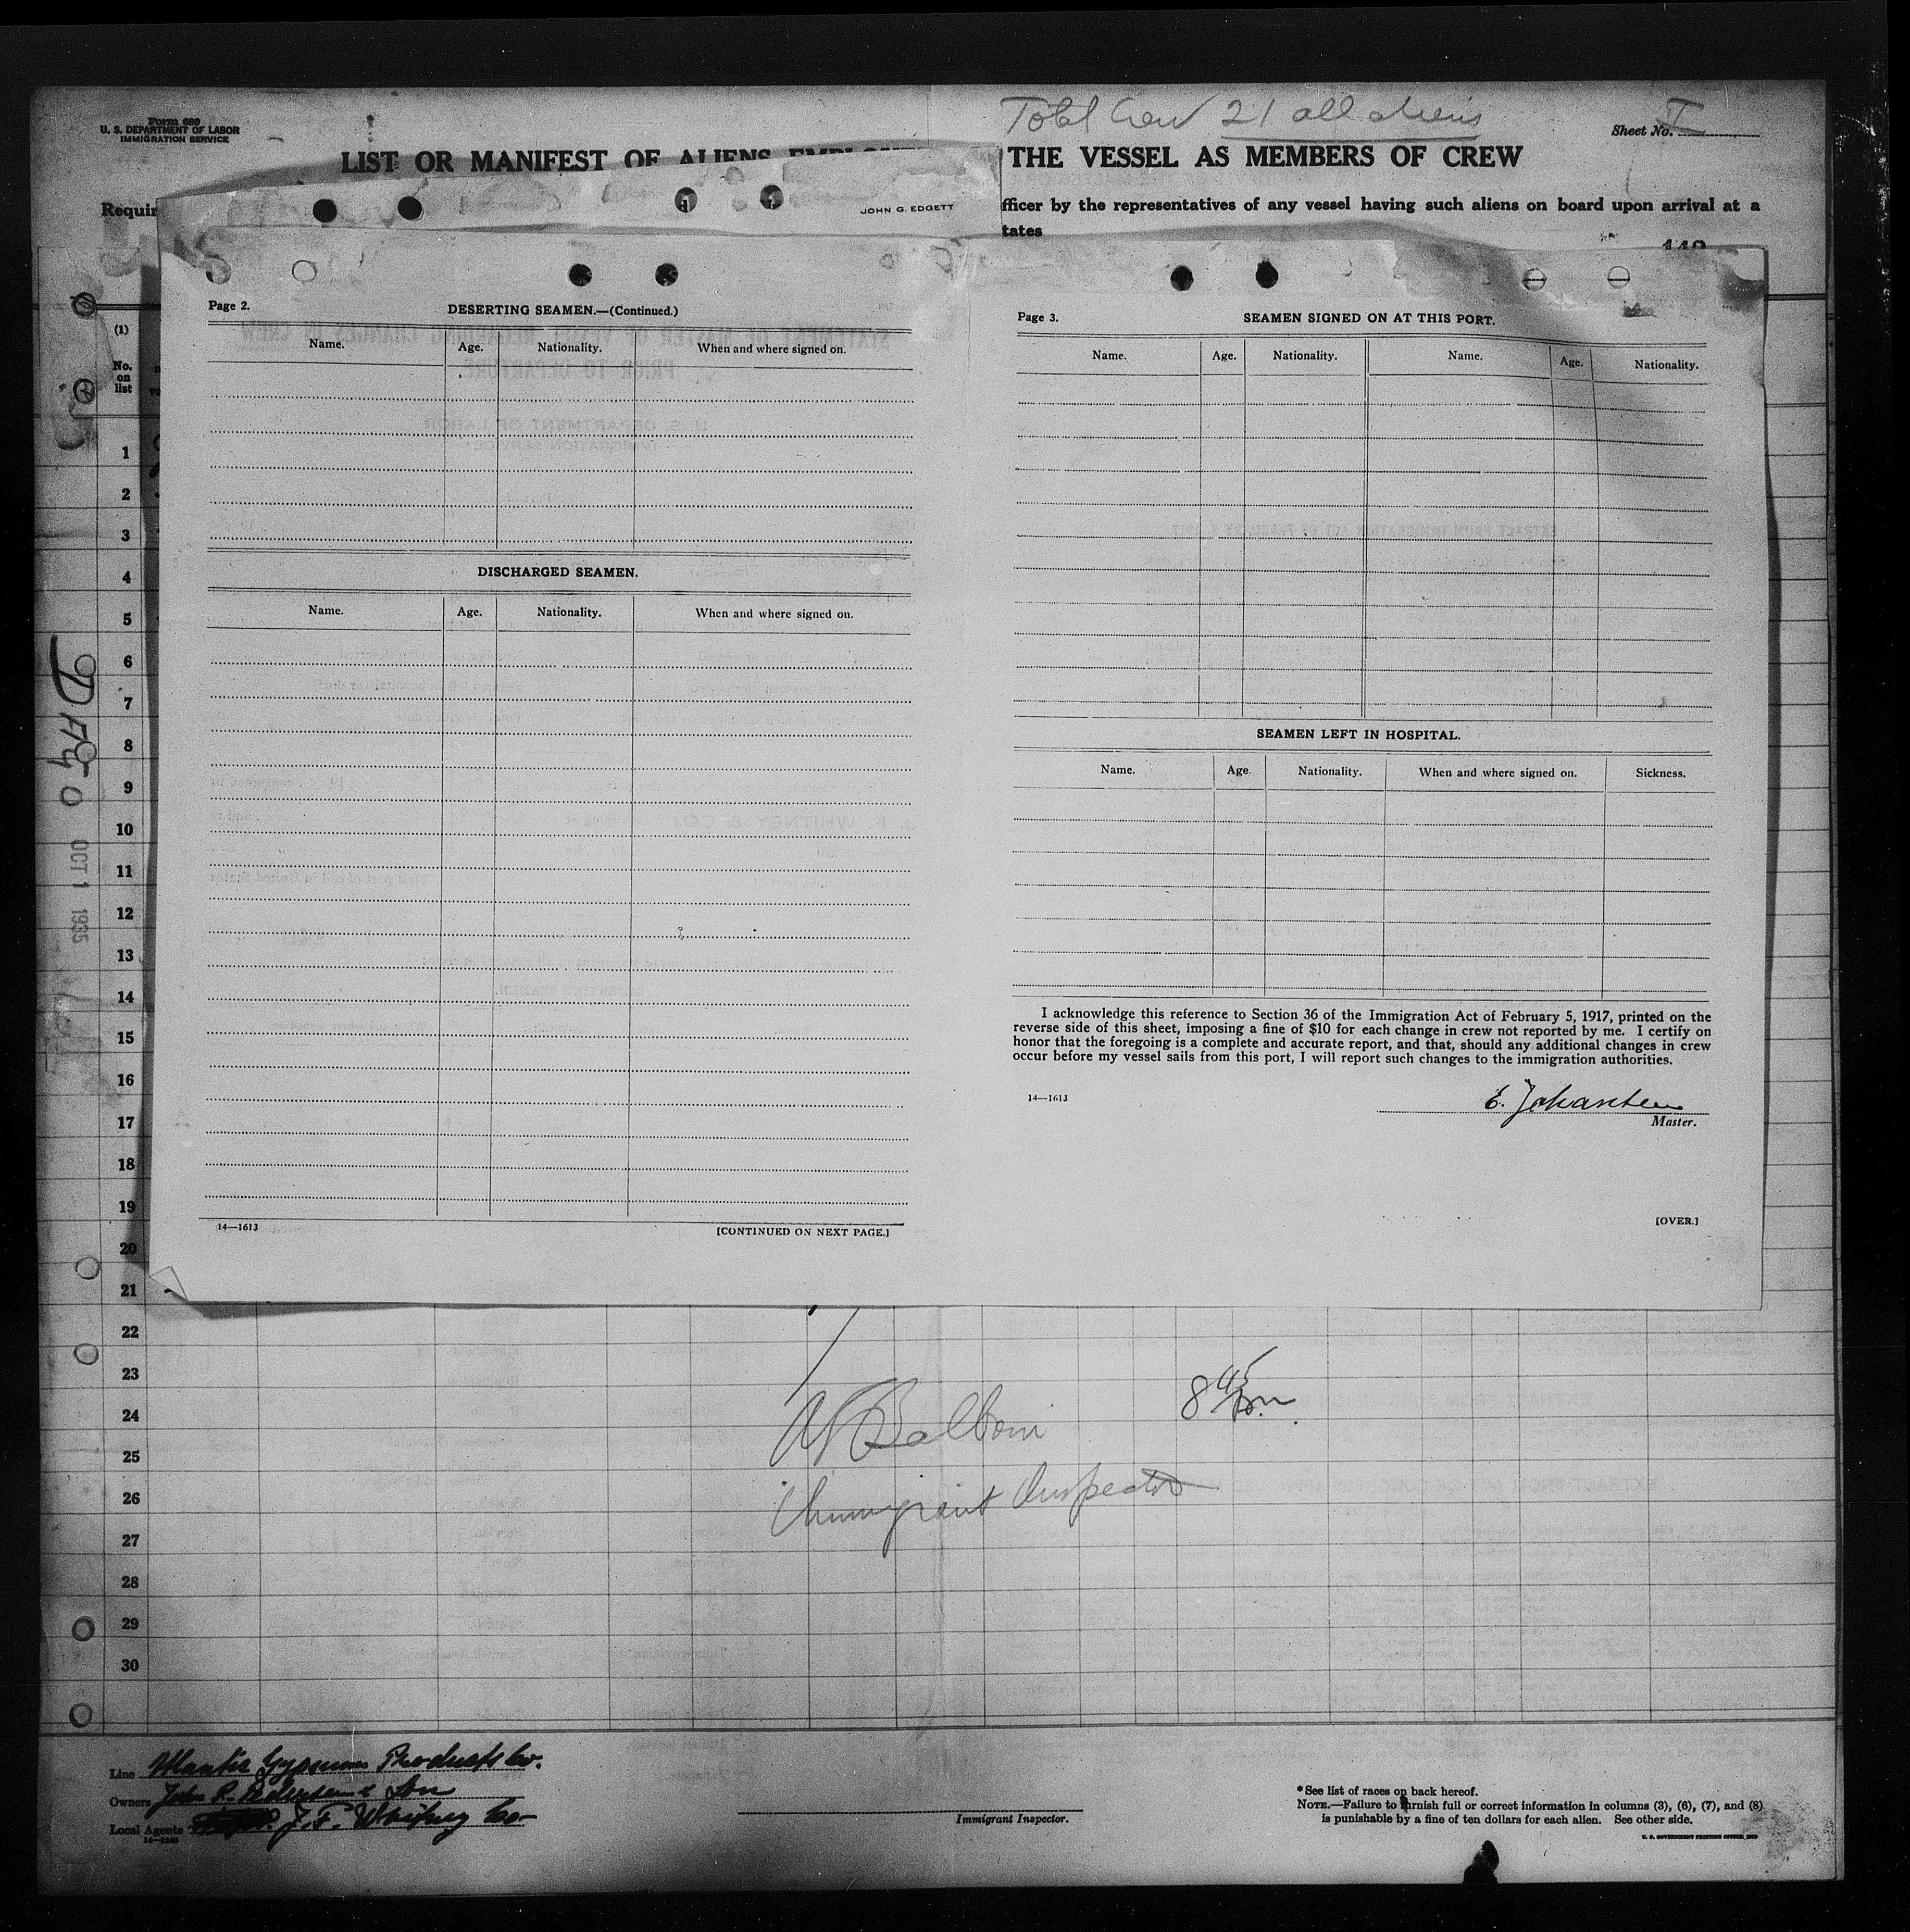 Form 680
U. S. DEPARTMENT OF LABOR
IMMIGRATION SERVICE
Total Crew 21 all aliens
Sheet No. I
LIST OR MANIFEST OF ALIENS
THE VESSEL AS MEMBERS OF CREW
Requir
fficer by the representatives of any vessel having such aliens on board upon arrival at a
tates
JOHN G. EDGETT
(1)
No.
on
list
Page 2.
DESERTING SEAMEN.—(Continued.)
Name. Age. Nationality. When and where signed on.
DISCHARGED SEAMEN.
Name. Age. Nationality. When and where signed on.
14—1613
[CONTINUED ON NEXT PAGE.]
Page 3.
SEAMEN SIGNED ON AT THIS PORT.
Name. Age. Nationality. Name. Age. Nationality.
SEAMEN LEFT IN HOSPITAL.
Name. Age. Nationality. When and where signed on. Sickness.
I acknowledge this reference to Section 36 of the Immigration Act of February 5, 1917, printed on the
reverse side of this sheet, imposing a fine of $10 for each change in crew not reported by me. I certify on
honor that the foregoing is a complete and accurate report, and that, should any additional changes in crew
occur before my vessel sails from this port, I will report such changes to the immigration authorities.
14—1613
E. Johansen
Master.
[OVER.]
1
2
3
4
5
6
7
8
9
10
11
12
13
14
15
16
17
18
19
20
21
22
23
24
25
26
27
28
29
30
DAGO
OCT 1 1935
Balboni
8 45
Immigrant Inspector
Line Atlantic Gypsum Products Co.
Owners John P. Pedersen & Son
Local Agents J. F. Whitney Co
Immigrant Inspector.
*See list of races on back hereof.
NOTE.—Failure to furnish full or correct information in columns (3), (6), (7), and (8)
is punishable by a fine of ten dollars for each alien. See other side.
U. S. GOVERNMENT PRINTING OFFICE